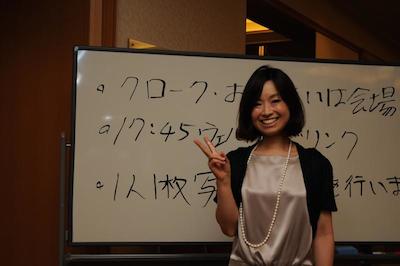 クローク・お いは会場
17:45 ウェ リンク
1人1枚写 を行いま